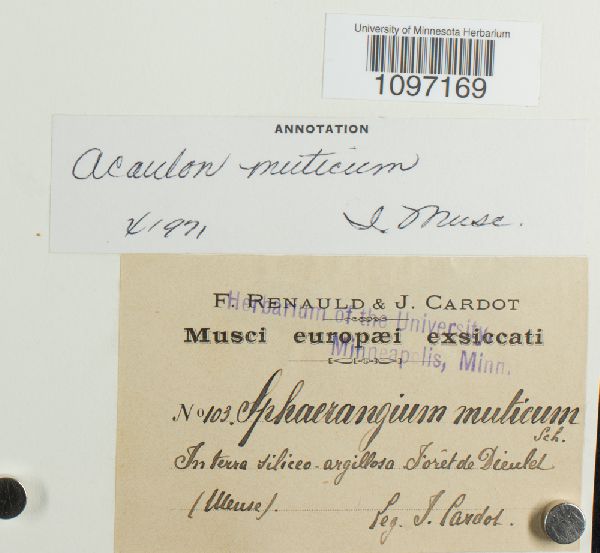 University of Minnesota Herbarium
1097169
ANNOTATION
Acaulon muticum
X 1971
I. Musc.
F. RENAULD & J. CARDOT
Herbarium of the University
Musci europæi exsiccati
Minneapolis, Minn.
No 103. Sphaerangium muticum
Sch.
In terra siliceo-argillosa Forêt de Dieulet
(Meuse).
Leg. J. Cardot.